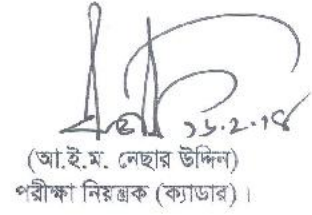 (আ.ই.ম. নেছার উদ্দিন)
পরীক্ষা নিয়ন্ত্রক (ক্যাডার)।